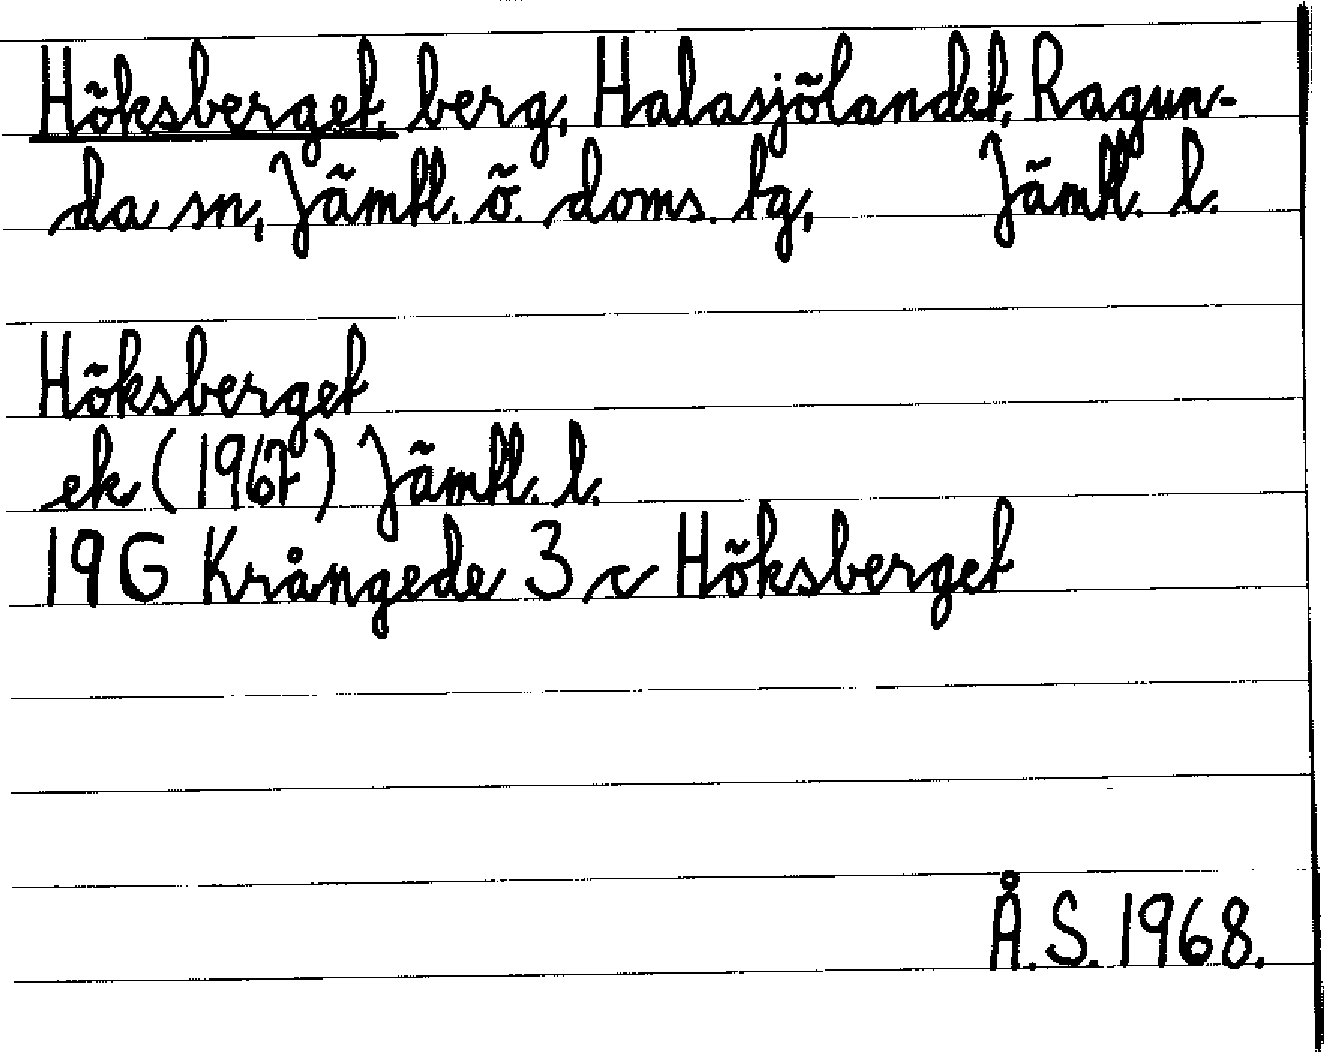 Höksberget, berg, Halasjölandet, Ragun-
da sn, Jämtl. ö. doms. tg, Jämtl. l.
Höksberget
ek (1967) Jämtl. l.
19 G Krångede 3 c Höksberget
Å.S. 1968.